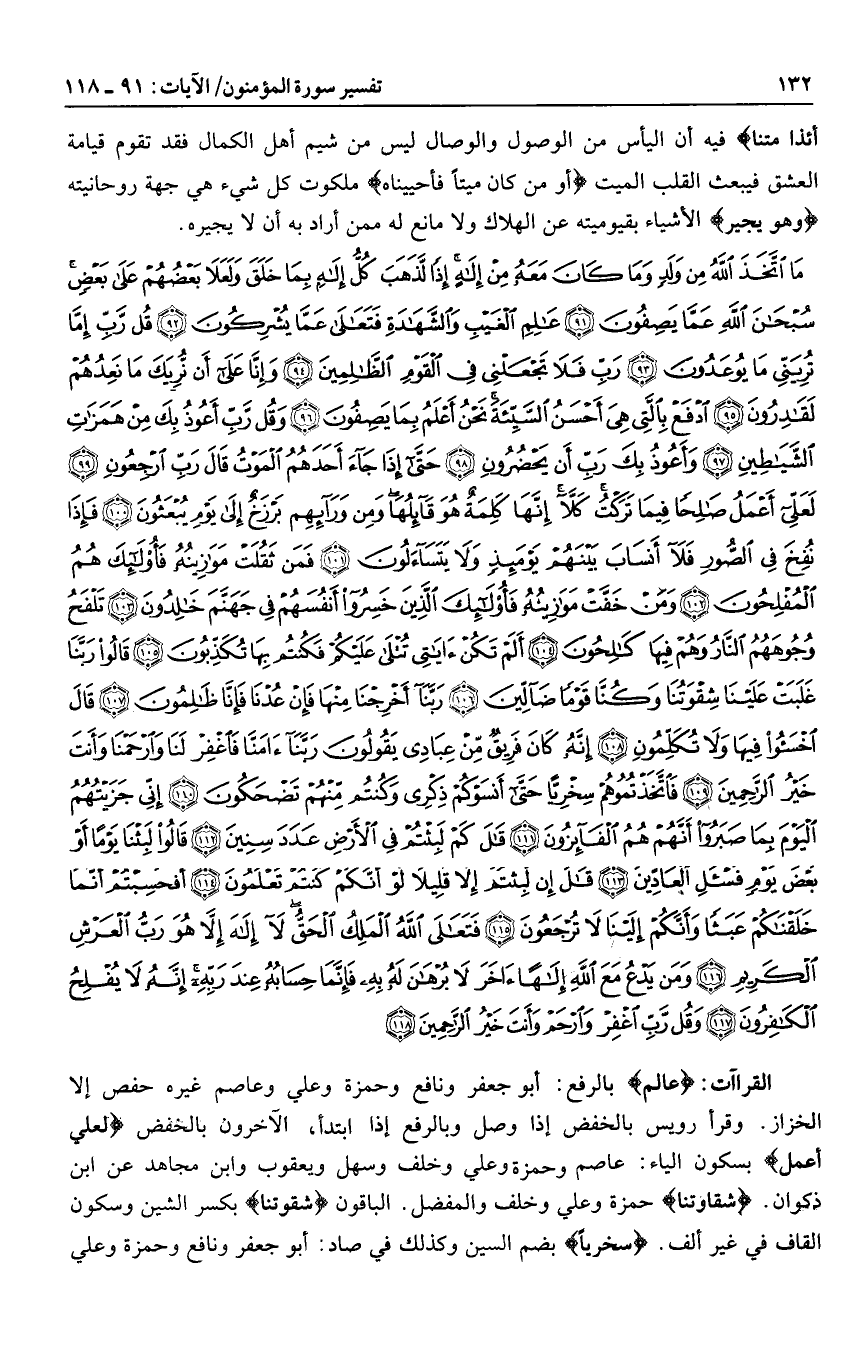 ١٣٢ تفسير سورة المؤمنون/ الآيات: ٩١ ـ ١١٨
أئذا متنا﴾ فيه أن اليأس من الوصول والوصال ليس من شيم أهل الكمال فقد تقوم قيامة
العشق فيبعث القلب الميت ﴿أو من كان ميتاً فأحييناه﴾ ملكوت كل شيء هي جهة روحانيته
﴿وهو يجير﴾ الأشياء بقيوميته عن الهلاك ولا مانع له ممن أراد به أن لا يجيره.
مَا ٱتَّخَذَ ٱللَّهُ مِن وَلَدٍ وَمَا كَانَ مَعَهُ مِنْ إِلَٰهٍ إِذًا لَّذَهَبَ كُلُّ إِلَٰهٍ بِمَا خَلَقَ وَلَعَلَا بَعْضُهُمْ عَلَىٰ بَعْضٍ
سُبْحَٰنَ ٱللَّهِ عَمَّا يَصِفُونَ ﴿٩١﴾ عَٰلِمِ ٱلْغَيْبِ وَٱلشَّهَٰدَةِ فَتَعَٰلَىٰ عَمَّا يُشْرِكُونَ ﴿٩٢﴾ قُل رَّبِّ إِمَّا
تُرِيَنِّي مَا يُوعَدُونَ ﴿٩٣﴾ رَبِّ فَلَا تَجْعَلْنِي فِي ٱلْقَوْمِ ٱلظَّٰلِمِينَ ﴿٩٤﴾ وَإِنَّا عَلَىٰٓ أَن نُّرِيَكَ مَا نَعِدُهُمْ
لَقَٰدِرُونَ ﴿٩٥﴾ ٱدْفَعْ بِٱلَّتِي هِيَ أَحْسَنُ ٱلسَّيِّئَةَ نَحْنُ أَعْلَمُ بِمَا يَصِفُونَ ﴿٩٦﴾ وَقُل رَّبِّ أَعُوذُ بِكَ مِنْ هَمَزَٰتِ
ٱلشَّيَٰطِينِ ﴿٩٧﴾ وَأَعُوذُ بِكَ رَبِّ أَن يَحْضُرُونِ ﴿٩٨﴾ حَتَّىٰٓ إِذَا جَآءَ أَحَدَهُمُ ٱلْمَوْتُ قَالَ رَبِّ ٱرْجِعُونِ ﴿٩٩﴾
لَعَلِّيٓ أَعْمَلُ صَٰلِحًا فِيمَا تَرَكْتُ كَلَّآ إِنَّهَا كَلِمَةٌ هُوَ قَآئِلُهَا وَمِن وَرَآئِهِم بَرْزَخٌ إِلَىٰ يَوْمِ يُبْعَثُونَ ﴿١٠٠﴾ فَإِذَا
نُفِخَ فِي ٱلصُّورِ فَلَآ أَنسَابَ بَيْنَهُمْ يَوْمَئِذٍ وَلَا يَتَسَآءَلُونَ ﴿١٠١﴾ فَمَن ثَقُلَتْ مَوَٰزِينُهُ فَأُو۟لَٰٓئِكَ هُمُ
ٱلْمُفْلِحُونَ ﴿١٠٢﴾ وَمَنْ خَفَّتْ مَوَٰزِينُهُ فَأُو۟لَٰٓئِكَ ٱلَّذِينَ خَسِرُوٓا۟ أَنفُسَهُمْ فِي جَهَنَّمَ خَٰلِدُونَ ﴿١٠٣﴾ تَلْفَحُ
وُجُوهَهُمُ ٱلنَّارُ وَهُمْ فِيهَا كَٰلِحُونَ ﴿١٠٤﴾ أَلَمْ تَكُنْ ءَايَٰتِي تُتْلَىٰ عَلَيْكُمْ فَكُنتُم بِهَا تُكَذِّبُونَ ﴿١٠٥﴾ قَالُوا۟ رَبَّنَا
غَلَبَتْ عَلَيْنَا شِقْوَتُنَا وَكُنَّا قَوْمًا ضَآلِّينَ ﴿١٠٦﴾ رَبَّنَآ أَخْرِجْنَا مِنْهَا فَإِنْ عُدْنَا فَإِنَّا ظَٰلِمُونَ ﴿١٠٧﴾ قَالَ
ٱخْسَـُٔوا۟ فِيهَا وَلَا تُكَلِّمُونِ ﴿١٠٨﴾ إِنَّهُ كَانَ فَرِيقٌ مِّنْ عِبَادِي يَقُولُونَ رَبَّنَآ ءَامَنَّا فَٱغْفِرْ لَنَا وَٱرْحَمْنَا وَأَنتَ
خَيْرُ ٱلرَّٰحِمِينَ ﴿١٠٩﴾ فَٱتَّخَذْتُمُوهُمْ سِخْرِيًّا حَتَّىٰٓ أَنسَوْكُمْ ذِكْرِي وَكُنتُم مِّنْهُمْ تَضْحَكُونَ ﴿١١٠﴾ إِنِّي جَزَيْتُهُمُ
ٱلْيَوْمَ بِمَا صَبَرُوٓا۟ أَنَّهُمْ هُمُ ٱلْفَآئِزُونَ ﴿١١١﴾ قَٰلَ كَمْ لَبِثْتُمْ فِي ٱلْأَرْضِ عَدَدَ سِنِينَ ﴿١١٢﴾ قَالُوا۟ لَبِثْنَا يَوْمًا أَوْ
بَعْضَ يَوْمٍ فَسْـَٔلِ ٱلْعَآدِّينَ ﴿١١٣﴾ قَٰلَ إِن لَّبِثْتُمْ إِلَّا قَلِيلًا لَّوْ أَنَّكُمْ كُنتُمْ تَعْلَمُونَ ﴿١١٤﴾ أَفَحَسِبْتُمْ أَنَّمَا
خَلَقْنَٰكُمْ عَبَثًا وَأَنَّكُمْ إِلَيْنَا لَا تُرْجَعُونَ ﴿١١٥﴾ فَتَعَٰلَى ٱللَّهُ ٱلْمَلِكُ ٱلْحَقُّ لَآ إِلَٰهَ إِلَّا هُوَ رَبُّ ٱلْعَرْشِ
ٱلْكَرِيمِ ﴿١١٦﴾ وَمَن يَدْعُ مَعَ ٱللَّهِ إِلَٰهًا ءَاخَرَ لَا بُرْهَٰنَ لَهُ بِهِ فَإِنَّمَا حِسَابُهُ عِندَ رَبِّهِ إِنَّهُ لَا يُفْلِحُ
ٱلْكَٰفِرُونَ ﴿١١٧﴾ وَقُل رَّبِّ ٱغْفِرْ وَٱرْحَمْ وَأَنتَ خَيْرُ ٱلرَّٰحِمِينَ ﴿١١٨﴾
القراآت: ﴿عالم﴾ بالرفع: أبو جعفر ونافع وحمزة وعلي وعاصم غيره حفص إلا
الخزاز. وقرأ رويس بالخفض إذا وصل وبالرفع إذا ابتدأ، الآخرون بالخفض ﴿لعلي
أعمل﴾ بسكون الياء: عاصم وحمزة وعلي وخلف وسهل ويعقوب وابن مجاهد عن ابن
ذكوان. ﴿شقاوتنا﴾ حمزة وعلي وخلف والمفضل. الباقون ﴿شقوتنا﴾ بكسر الشين وسكون
القاف في غير ألف. ﴿سخرياً﴾ بضم السين وكذلك في صاد: أبو جعفر ونافع وحمزة وعلي